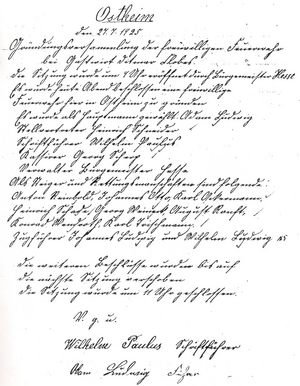 Ostheim
den 27.7.1925
Gründungsversammlung der freiwilligen Feuerwehr
bei Gastwirt
die Sitzung wurde um 9 Uhr eröffnet durch Bürgermeister Hesse
Es wird heute Abend beschlossen eine freiwillige
Feuerwehr hier in Ostheim zu gründen
Es wurde als Hauptmann gewählt Adam Ludwig
Stellvertreter Heinrich Schneider
Schriftführer Wilhelm Paulus
Kassierer Georg
Verwalter Bürgermeister Hesse
Als Steiger und Rettungsmannschaften sind folgende:
Anton Reinbold, Johannes Otto, Karl Ackermann,
Heinrich Georg August
Konrad Karl
Zugführer Johannes Ludwig und Wilhelm Ludwig
die weiteren Beschlüsse wurden bis auf
die nächste Sitzung verschoben
die Sitzung wurde um 11 Uhr geschlossen.
V. g. u.
Wilhelm Paulus Schriftführer
Adam Ludwig